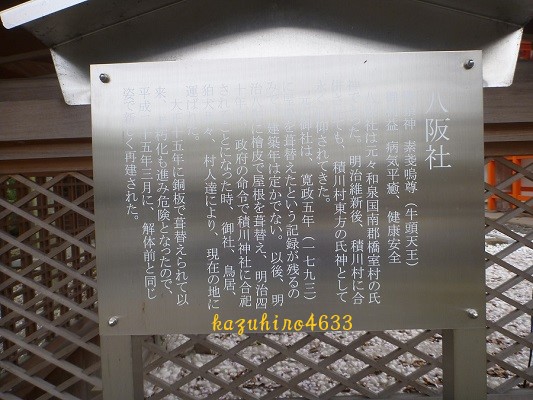 八阪社
神 素戔嗚尊(牛頭天王)
益 病気平癒、健康安全
社は元々和泉国南郡橋室村の氏
った。明治維新後、積川村に合
でも、積川村東方の氏神として
仰されてきた。
御社は、寛政五年(一七九三)
を葺替えたという記録が残るの
建築年は定かでない。以後、明
に檜皮で屋根を葺替え、明治四
政府の命令で積川神社に合祀
され ことになった時、御社、鳥居、
狛犬 々、村人達により、現在の地に
運ばれた。
大 十五年に銅板で葺替えられて以
来、 朽化も進み危険となったので、
平成 十五年三月に、解体前と同じ
姿で しく再建された。
kazuhiro4633